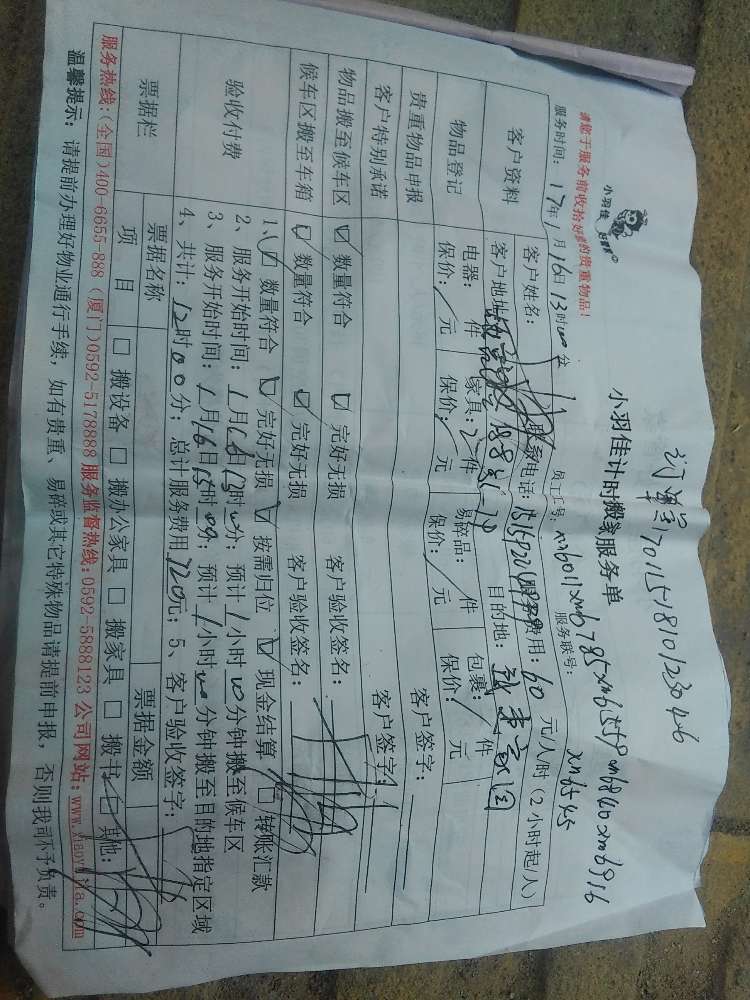 订单号701151810123046
小羽佳
好搬家
小羽佳计时搬家服务单
请您于服务前收拾好您的贵重物品!
员工工号:
服务时间: 17年1月16日13时00分
服务联号:
xm6545
客户资料
客户姓名:
联系电话:
服务费用: 60 元/小时(2小时起/人)
客户地址:
目的地:
物品登记
电器: / 件
家具: 2 件
易碎品: / 件
包裹: / 件
保价: / 元
保价: / 元
保价: / 元
保价: / 元
贵重物品申报
客户签字:
客户特别承诺
客户签字:
物品搬至候车区
☑ 数量符合
☑ 完好无损
客户验收签名:
候车区搬至车箱
☑ 数量符合
☑ 完好无损
客户验收签名:
验收付费
1、☑ 数量符合 ☑ 完好无损 ☑ 按需归位 ☑ 现金结算 □ 转账汇款
2、服务开始时间: 1月16日13时00分; 预计1小时00分钟搬至候车区
3、服务开始时间: 1月16日15时00分; 预计1小时00分钟搬至目的地指定区域
4、共计: 12时00分; 总计服务费用720元; 5、客户验收签字:
票据栏
票据名称
票据金额
项 目
□ 搬设备 □ 搬办公家具 □ 搬家具 □ 搬书 □ 其他:
服务热线:(全国)400-6655-888 (厦门)0592-5178888 服务监督热线:0592-5888123 公司网站:www.xiaoyujia.com
温馨提示: 请提前办理好物业通行手续, 如有贵重、易碎或其它特殊物品请提前申报, 否则我司不予负责。